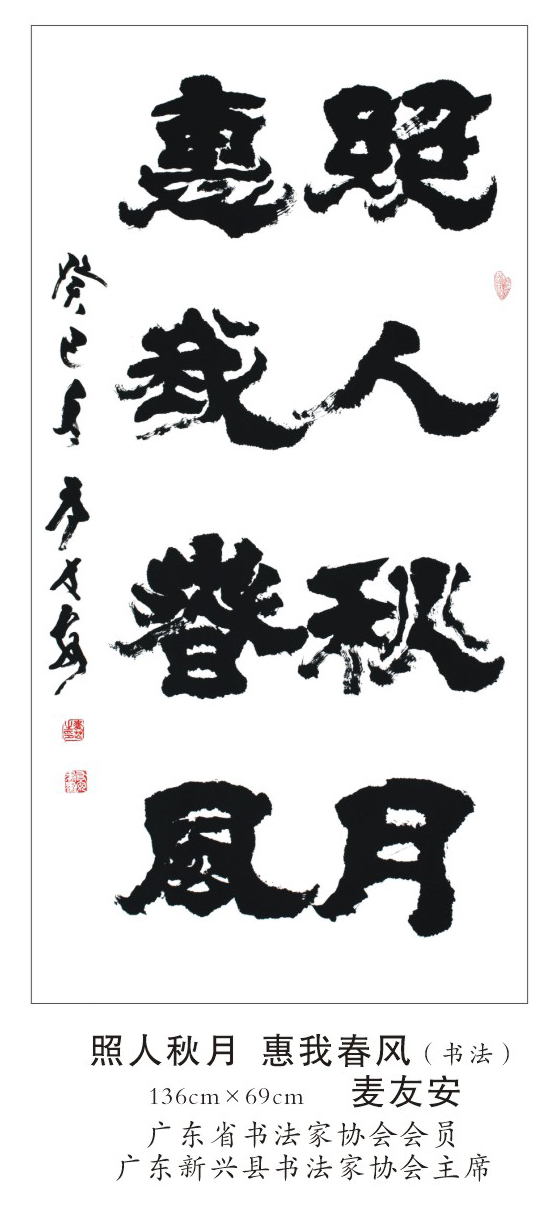 照人秋月
惠我春風
癸巳年麦友安
照人秋月 惠我春风（书法）
136cm×69cm 麦友安
广东省书法家协会会员
广东新兴县书法家协会主席